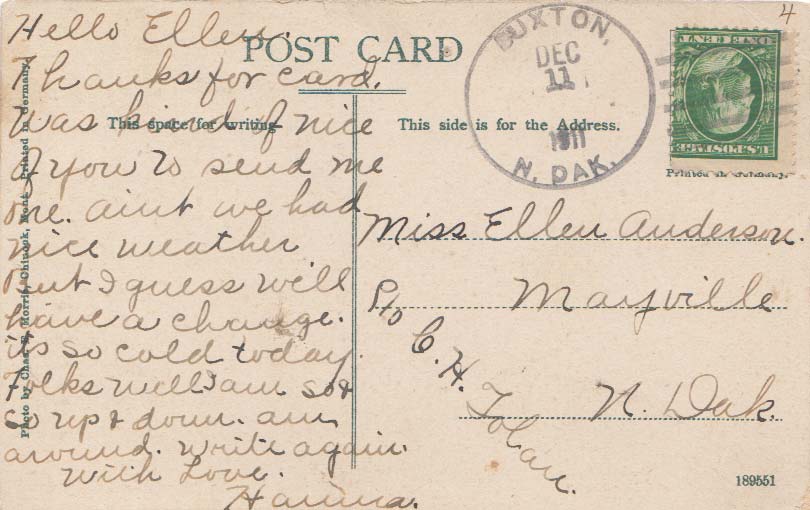 Hello Ellen.
Thanks for card.
Was kind of nice
of you to send me
one. aint we had
nice weather
but I guess will
have a change.
its so cold today.
Folks well I am so &
so up & down. am
around. write again.
With Love.
Hanna.
POST CARD
This space for writing
This side is for the Address.
Photo by Chas. E. Morris, Chinook, Mont. Printed in Germany.
BUXTON,
DEC
11
1911
N. DAK.
4
ONE CENT
U.S. POSTAGE
Printed in Germany.
Miss Ellen Anderson.
Mayville
C. H.
Tolan.
N. Dak.
189551